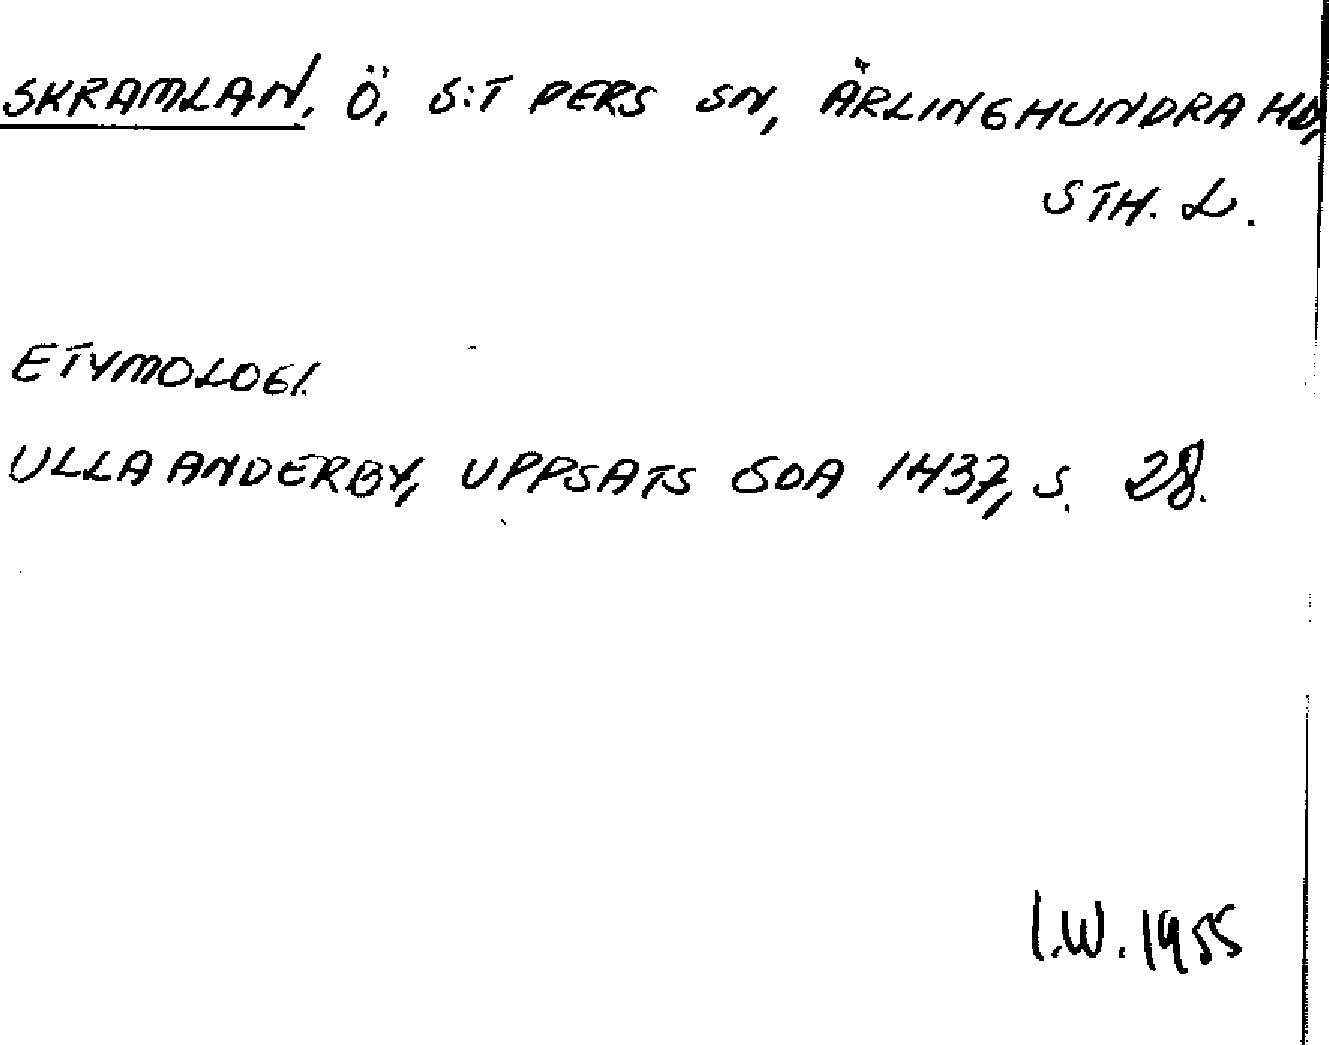 SKRAMLAN, Ö, S:T PERS SN, ÄRLINGHUNDRA HD,
STH. L.
ETYMOLOGI.
ULLA ANDERBY, UPPSATS SOA 1437, S. 28.
I.W. 1955